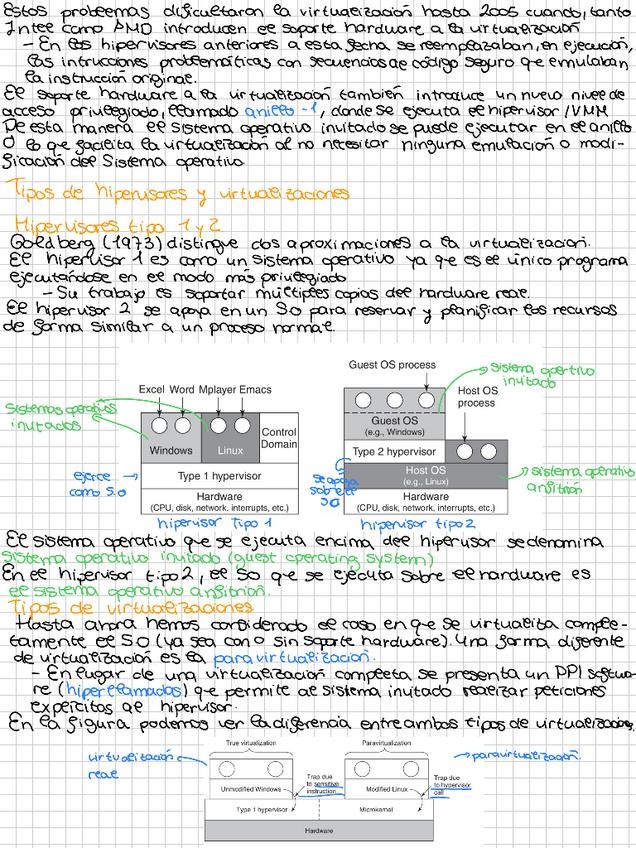 Estos problemas dificultaron la virtualización hasta 2005 cuando, tanto
Intel como AMD introducen el soporte hardware a la virtualización
- En los hipervisores anteriores a esta fecha se reemplazaban, en ejecución,
las intrucciones problemáticas con secuencias de código seguro que emulaban
la instrucción original.
El soporte hardware a la virtualización también introduce un nuevo nivel de
acceso privilegiado, llamado anillo -1, donde se ejecuta el hipervisor / VMM
De esta manera el sistema operativo invitado se puede ejecutar en el anillo
0 lo que facilita la virtualización al no necesitar ninguna emulación o modi-
ficación del Sistema operativo
Tipos de hipervisores y virtualizaciones
Hipervisores tipo 1 y 2
Goldberg (1973) distingue dos aproximaciones a la virtualización.
El hipervisor 1 es como un sistema operativo ya que es el único programa
ejecutándose en el modo más privilegiado
- Su trabajo es soportar múltiples copias del hardware real.
El hipervisor 2 se apoya en un SO para reservar y planificar los recursos
de forma similar a un proceso normal.
Guest OS process
sistema opertivo
invitado
Excel Word Mplayer Emacs
Host OS
process
Sistemas operativos
invitados
Guest OS
(e.g., Windows)
Control
Domain
Windows
Linux
Type 2 hypervisor
ejerce
como S.O
Type 1 hypervisor
se apoya
sobre el
SO
Host OS
(e.g., Linux)
sistema operativo
anfitrión
Hardware
(CPU, disk, network, interrupts, etc.)
Hardware
(CPU, disk, network, interrupts, etc.)
hipervisor Tipo 1
hipervisor tipo 2
El sistema operativo que se ejecuta encima del hipervisor se denomina
Sistema operativo invitado (guest operating system)
En el hipervisor tipo 2, el SO que se ejecuta sobre el hardware es
el sistema operativo anfitrión.
Tipos de virtualizaciones
Hasta ahora hemos considerado el caso en que se virtualiza comple-
tamente el SO (ya sea con o sin soporte hardware). Una forma diferente
de virtualización es la paravirtualización.
- En lugar de una virtualización completa se presenta un API softwa-
re (hiperllamadas) que permite al sistema invitado realizar peticiones
explícitas al hipervisor.
En la figura podemos ver la diferencia entre ambos tipos de virtualizaciones.
True virtualization
Paravirtualization
virtualización
real
paravirtualización
Trap due
to sensitive
instruction
Trap due
to hypervisor
call
Unmodified Windows
Modified Linux
Type 1 hypervisor
Microkernel
Hardware